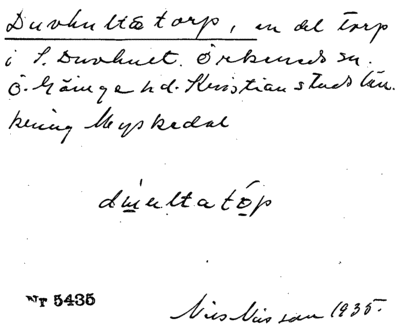 Duvhultatorp, en del torp
i S. Duvhult. Örkeneds sn.
Ö. Göinge hd. Kristianstads län.
kring Myskedal
Nr 5435
Nils Nilsson 1935.